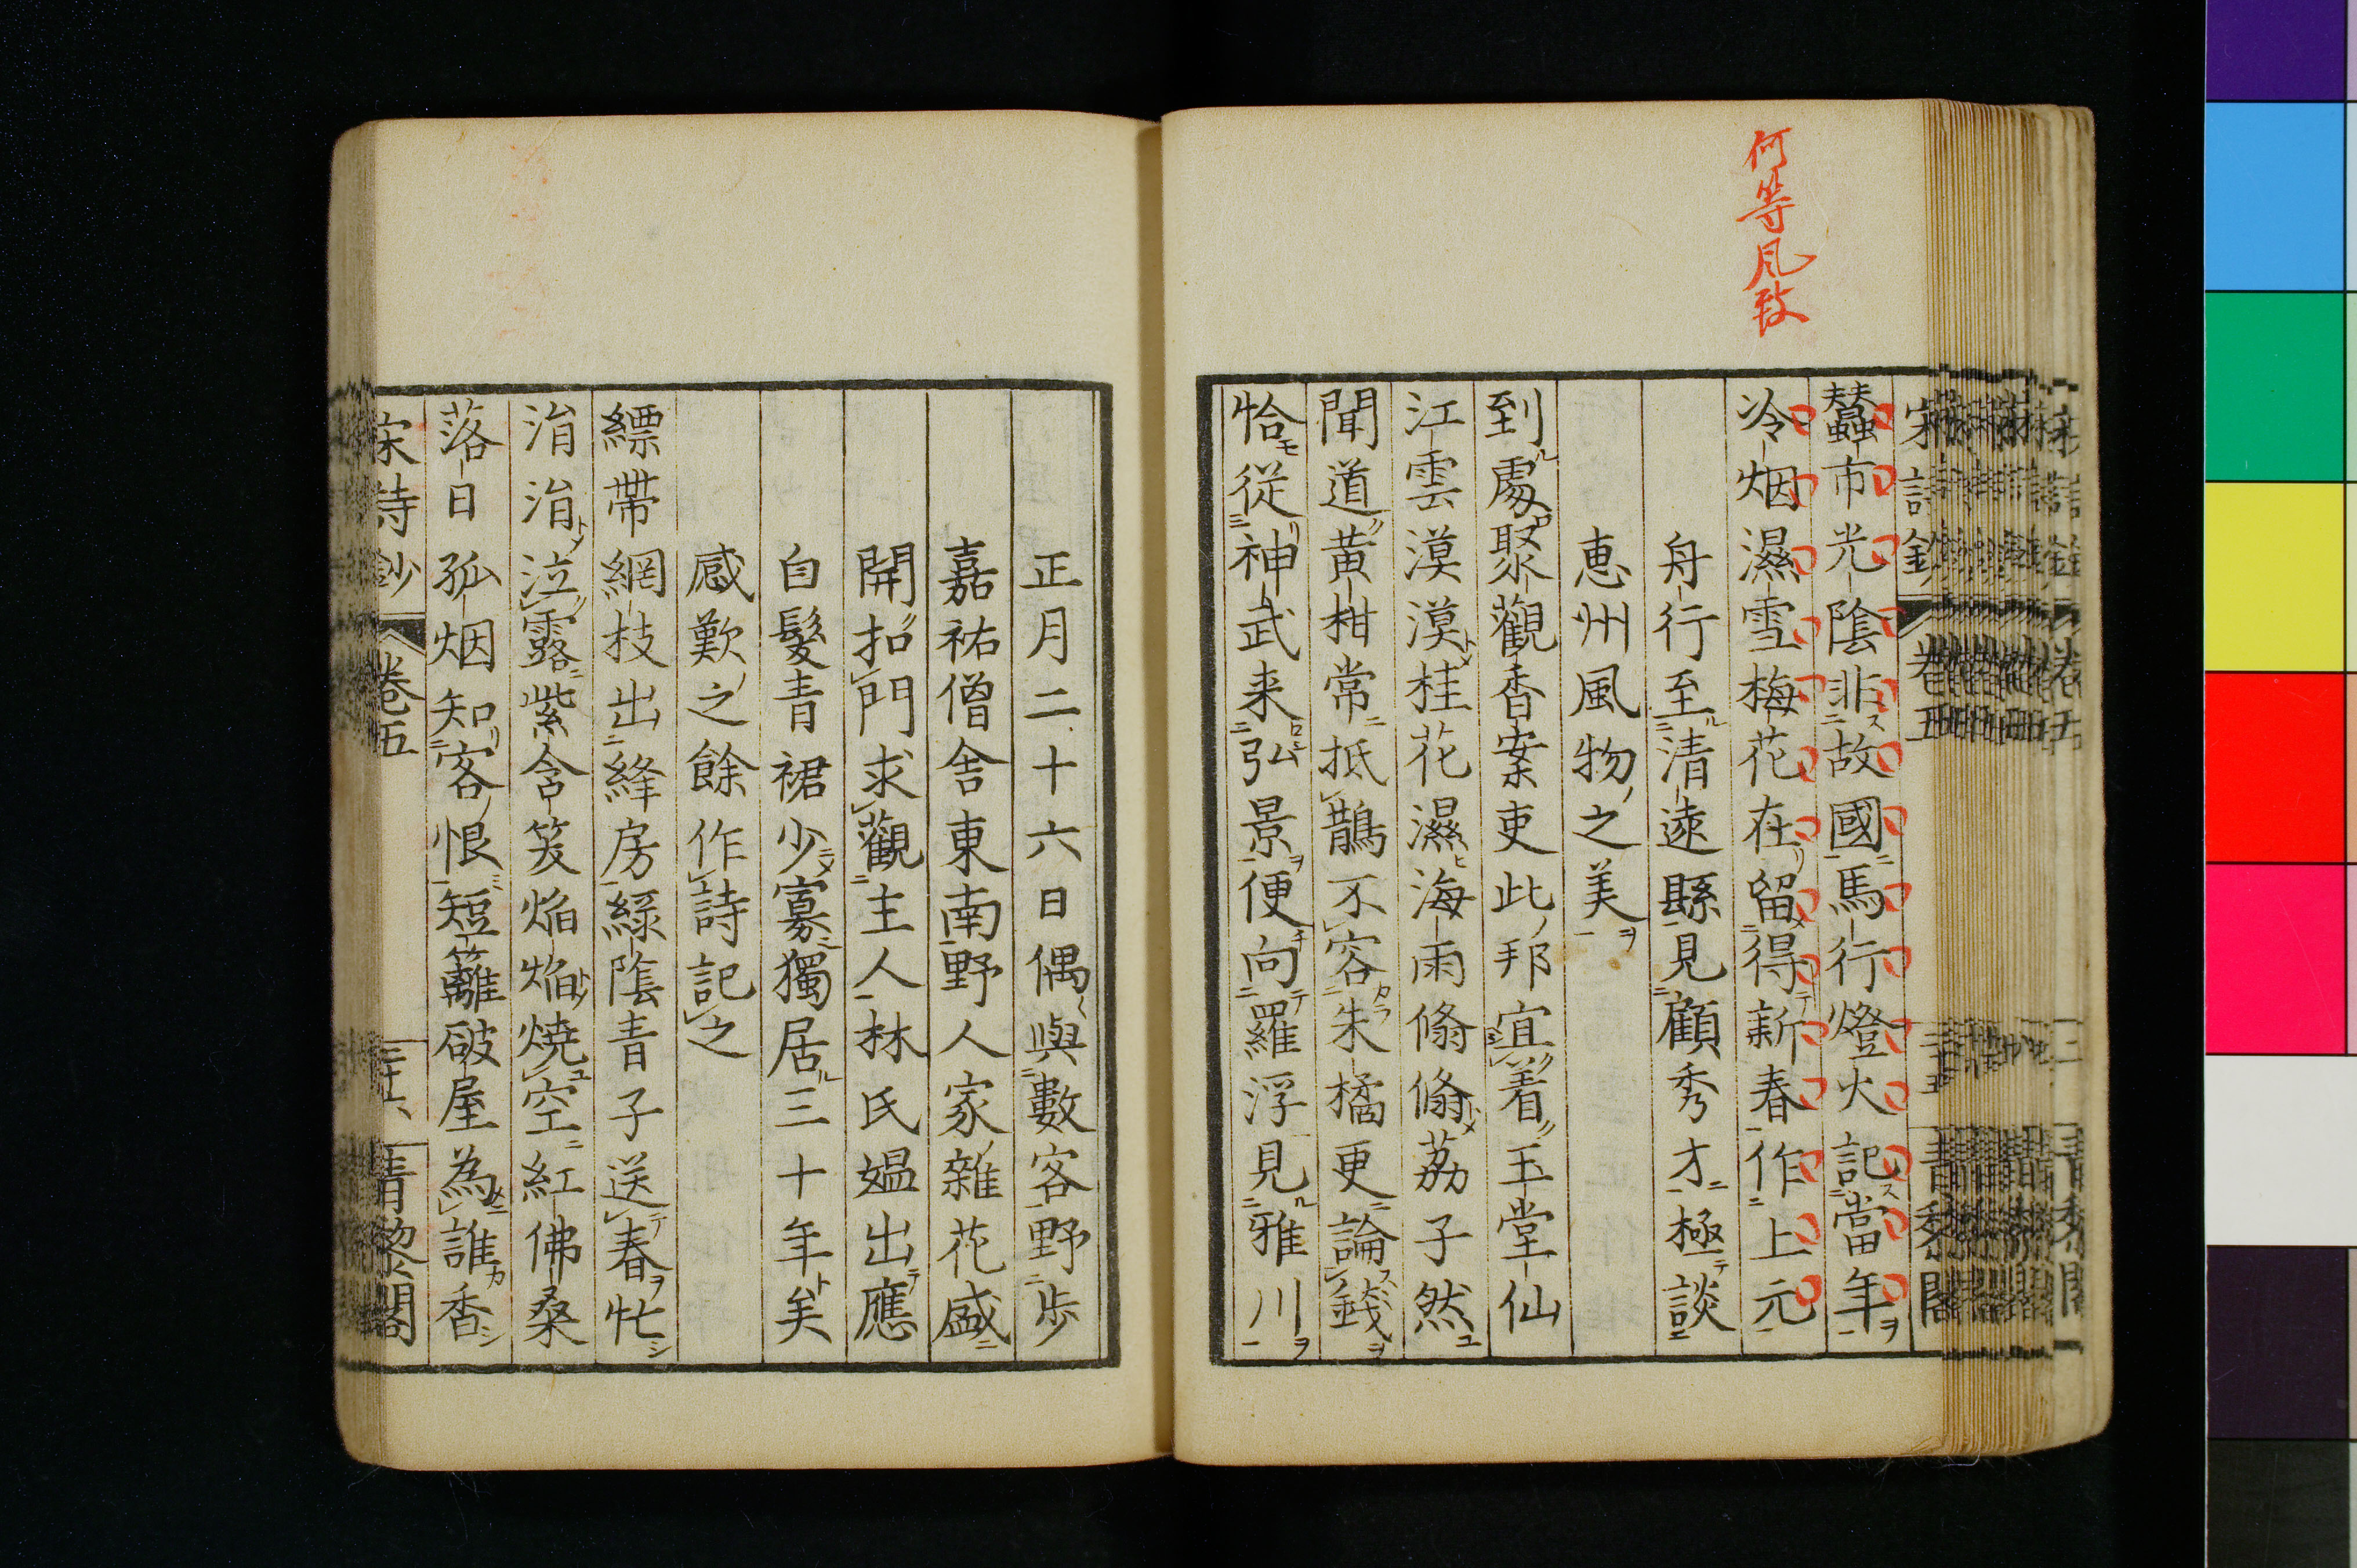 何等風致
蠶市光陰非故國馬行燈火記當年
冷烟濕雪梅花在留得新春作上元
舟行至清遠縣見顧秀才極談
恵州風物之美
到處聚觀香案吏此邦宜着玉堂仙
江雲漠漠桂花濕海雨翛翛荔子然
聞道黄柑常抵鵲不容朱橘更論錢
恰從神武来弘景便向羅浮見雅川
正月二十六日偶與數客野歩
嘉祐僧舎東南野人家雜花盛
開扣門求觀主人林氏媼出應
白髮青裙少寡獨居三十年矣
感歎之餘作詩記之
縹帶緗枝出絳房緑陰青子送春忙
涓涓泣露紫含笑焰焰燒空紅佛桑
落日孤烟知客恨短籬破屋為誰香
宋詩鈔 卷五 青黎閣